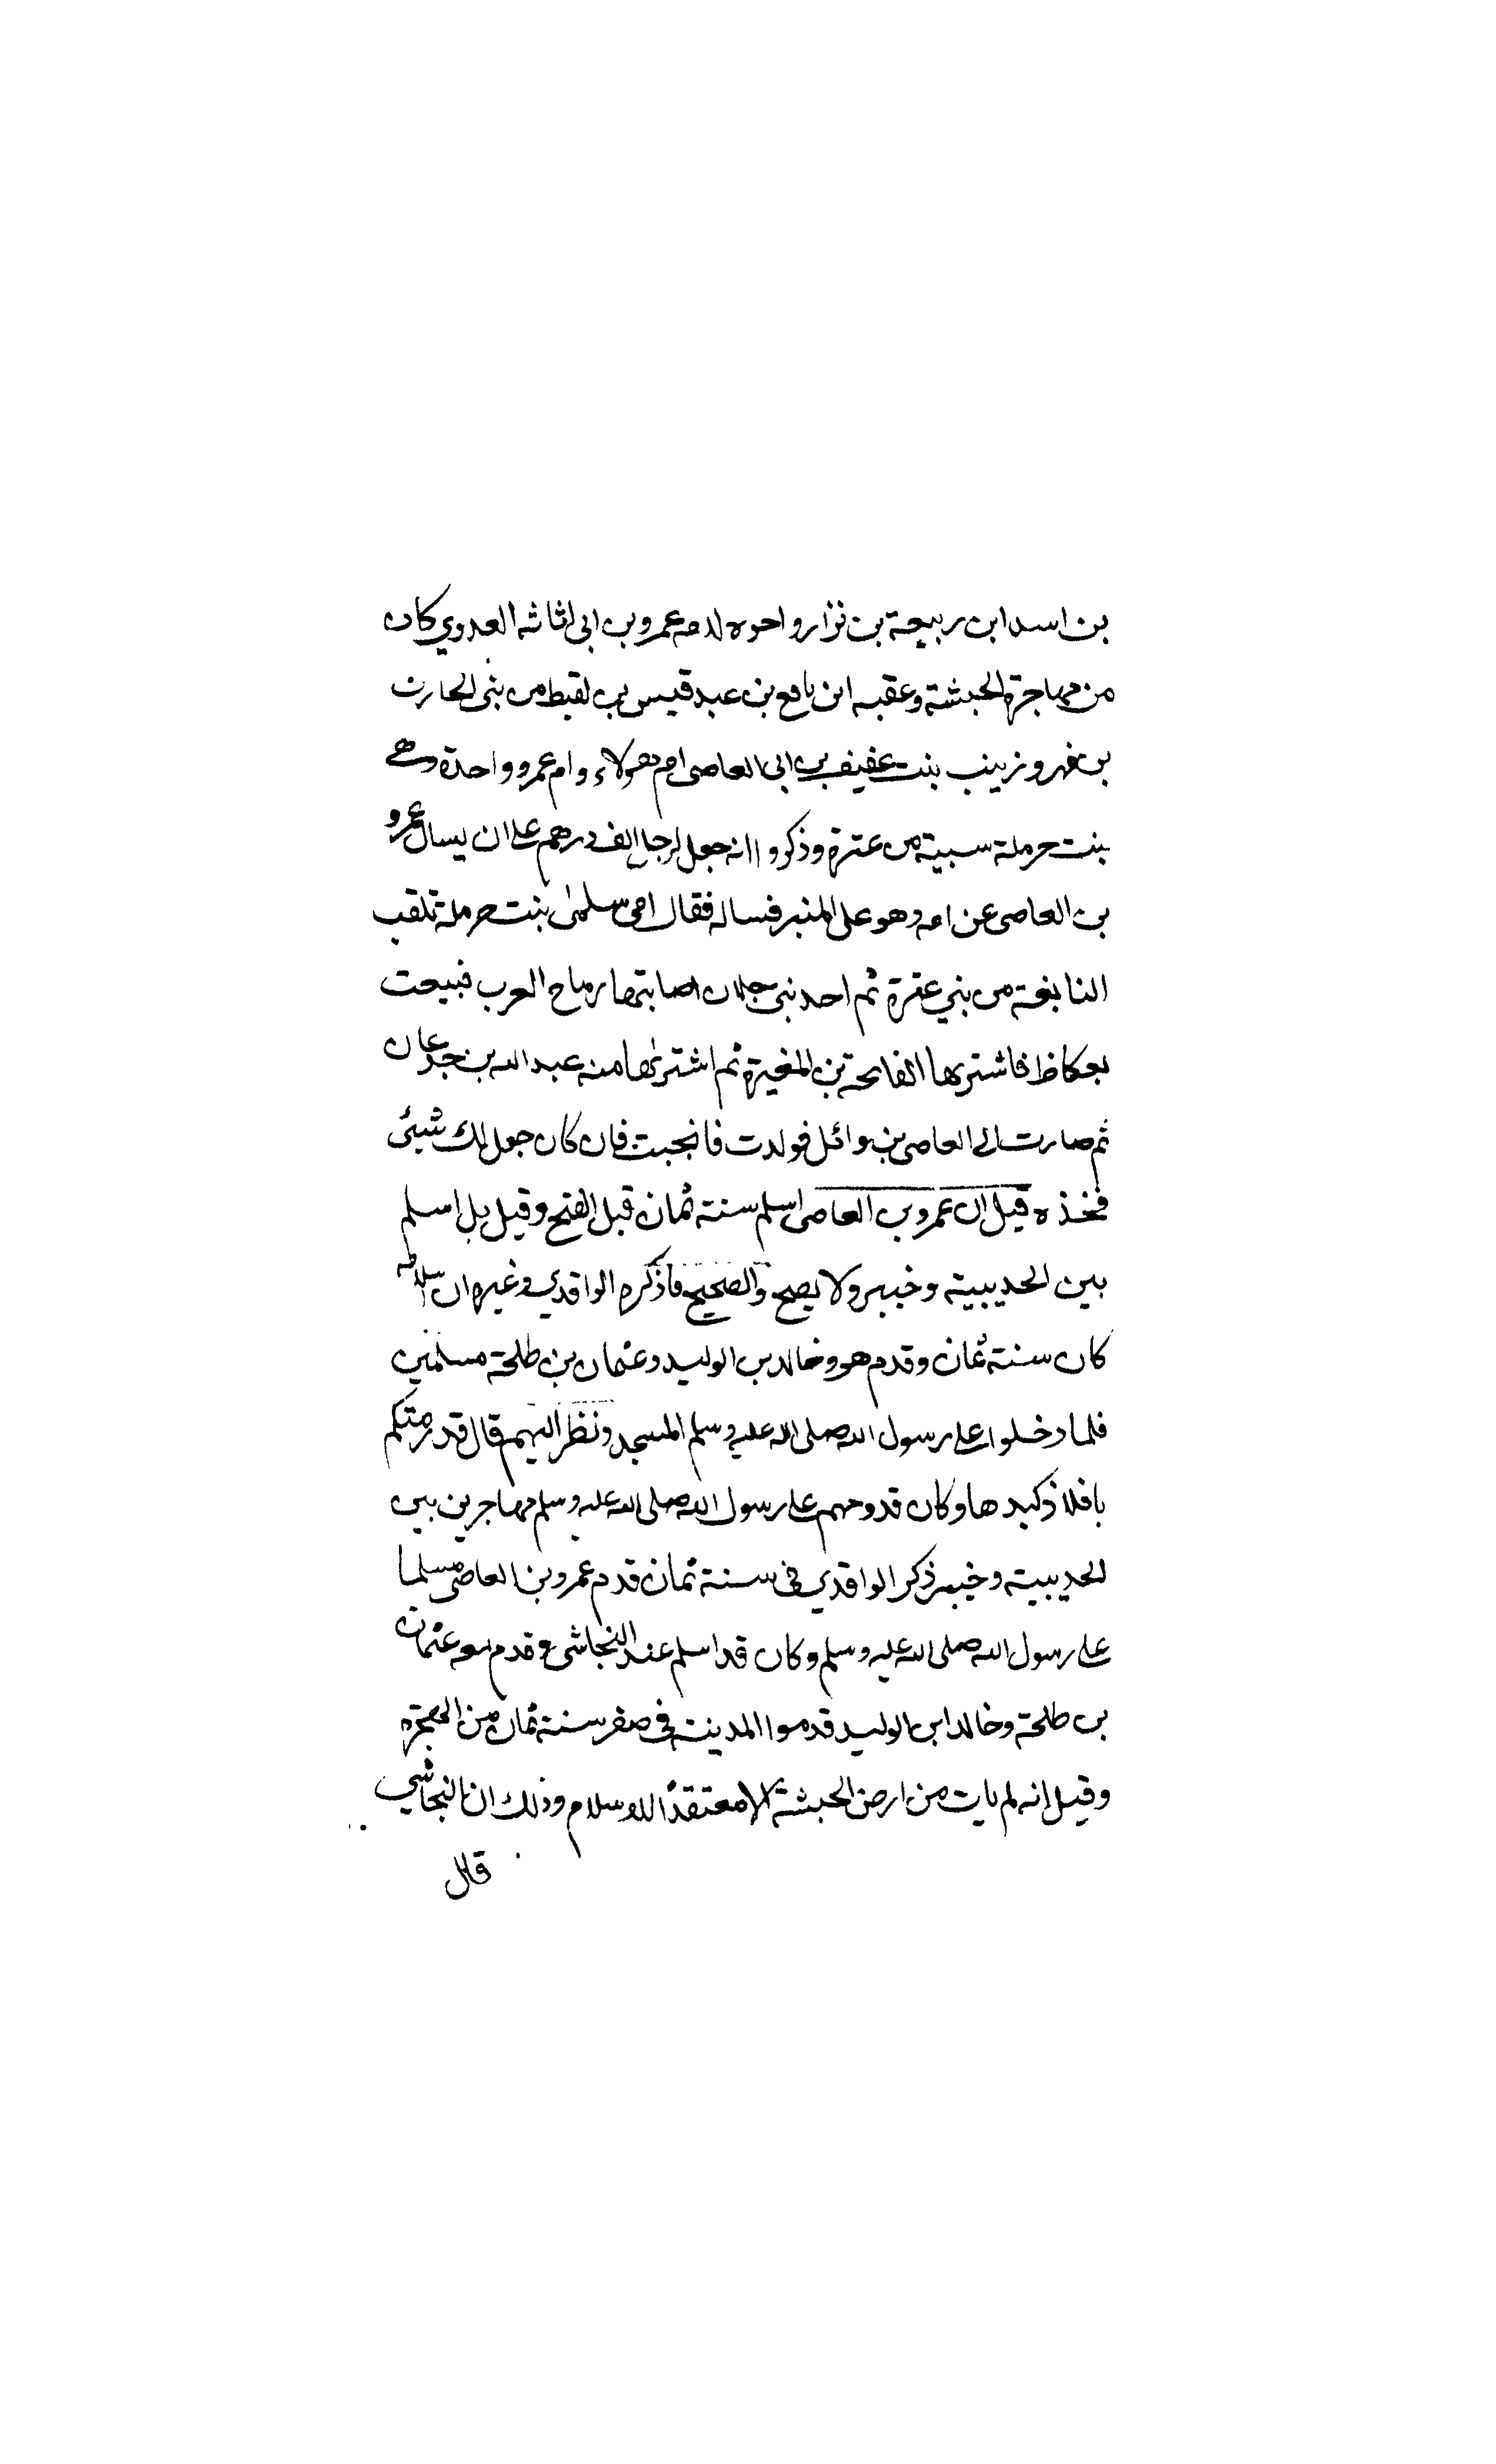 بن اسد ابن ربيعة بن نزار واخوه لامه عمرو بن ابى اثاثه العدوي كان
من مهاجرة الحبشة وعقبه ابن نافع بن عبد قيس بن لقيط من بنى الحارث
بن فهر وزينب بنت عفيف بن ابى العاصى ام هولاء وام عمرو واحدة وهى
بنت حرملة سبية من عنزة وذكروا انه جعل لرجل الف درهم على ان يسال عمرو
بن العاصى عن امه وهو على المنبر فساله فقال امى سلمى بنت حرملة تلقب
النابغة من بني عنزة ثم احد بنى جلان اصابتها رماح العرب فبيعت
بعكاظ فاشتريها الفاكه بن المغيرة ثم اشتريها منه عبد الله بن جدعان
ثم صارت الى العاصى بن وائل فولدت فانجبت فان كان جعل لك شيئ
فخذه قيل ان عمرو بن العاصى اسلم سنة ثمان قبل الفتح وقيل بل اسلم
بين الحديبية وخيبر ولا يصح والصحيح ماذكره الواقدي وغيره ان اسلامه
كان سنة ثمان وقدم هو وخالد بن الوليد وعثمان بن طلحة مسلمين
فلما دخلوا على رسول الله صلى الله عليه وسلم المسجد ونظر اليهم قال قد رمتكم
بافلاذ كبدها وكان قدومهم على رسول الله صلى الله عليه وسلم مهاجرين بين
الحديبية وخيبر ذكر الواقدي فى سنة ثمان قدم عمرو بن العاصى مسلما
على رسول الله صلى الله عليه وسلم وكان قد اسلم عند النجاشى وقدم معه عثمان
بن طلحة وخالد ابن الوليد قدموا المدينة فى صفر سنة ثمان من الهجرة
وقيل انه لم يات من ارض الحبشة الا معتقدًا للاسلام وذلك ان النجاشي
قال